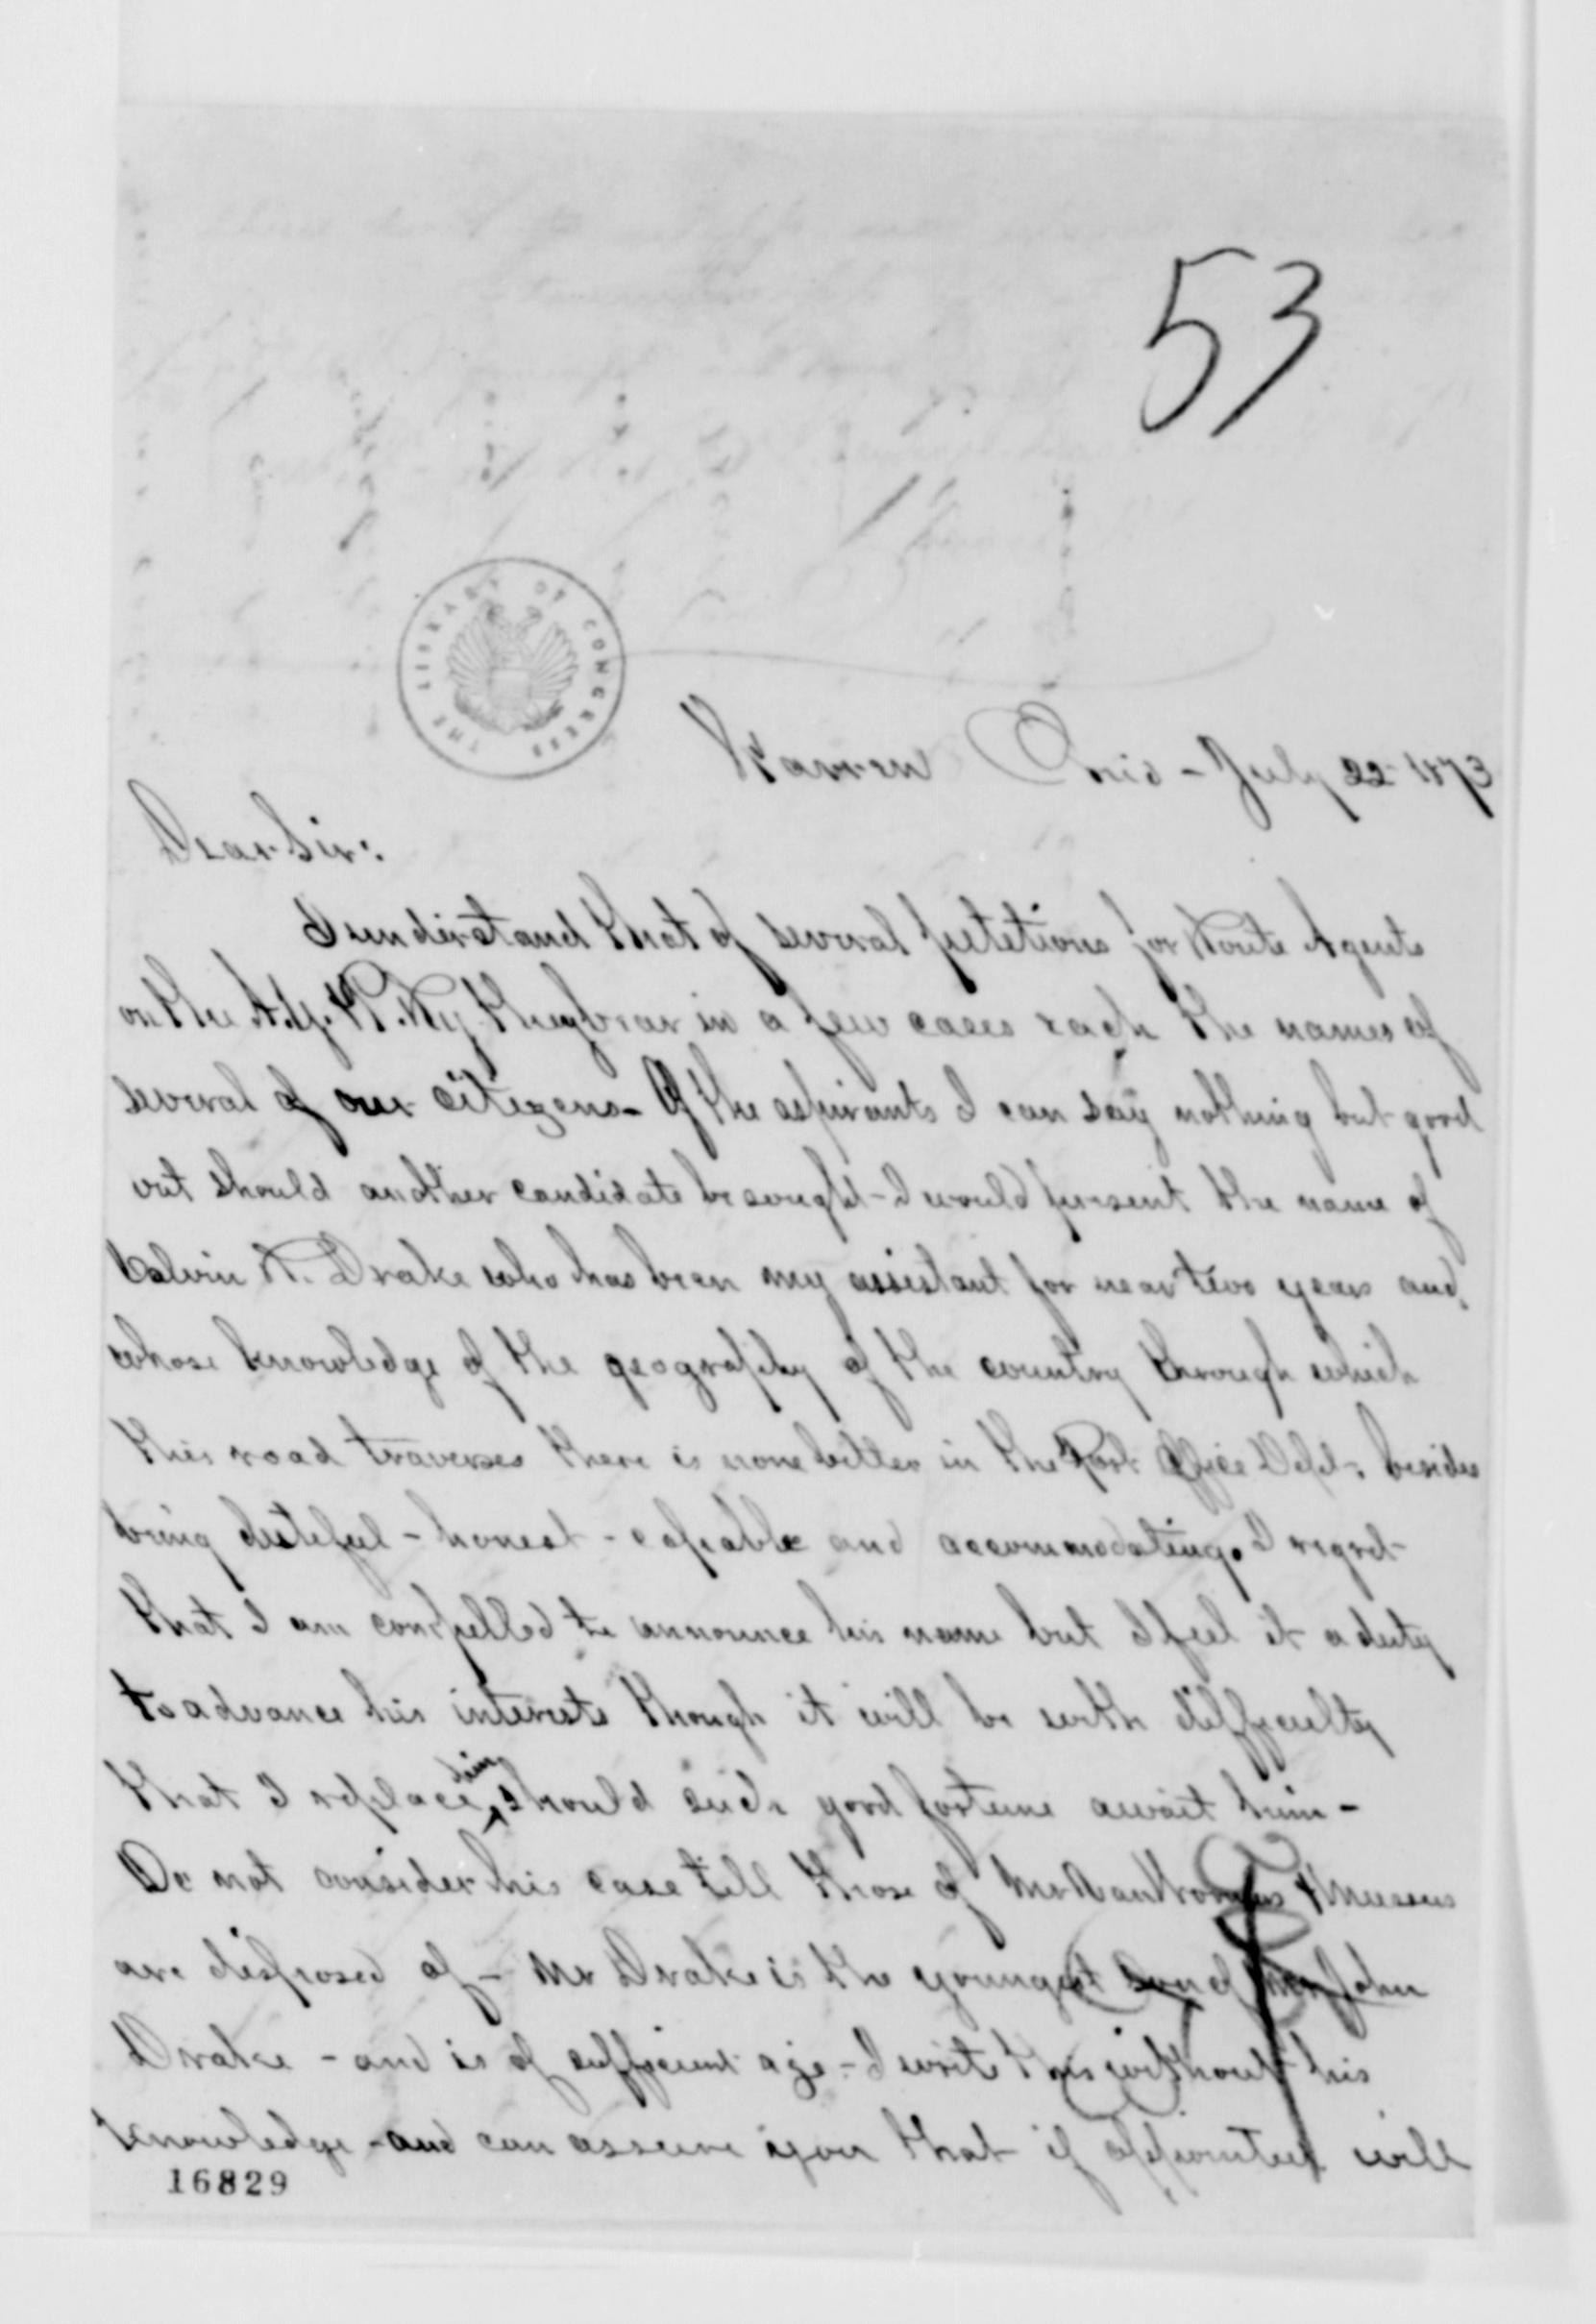 53
THE LIBRARY OF CONGRESS
Warren Ohio - July 22 1873
Dear Sir:
I understand that of several petetions for Route Agents
on the A.Y. & P. Ry they bear in a few cases each the names of
several of our citezens - Of the aspirants I can say nothing but good
but should another candidate be sought - I would present the name of
Calvin R. Drake who has been my assistant for near two years and
whose knowledge of the geography of the country through which
this road traverses there is none better in the Post Office Dept - besides
being duteful - honest - capable and accommodating. I regret
that I am compelled to announce his name but I feel it a duty
to advance his interests though it will be with difficulty
that I replace him should such good fortune await him -
Do not consider his case till those of Mr Van &
are disposed of - Mr Drake is the youngest son of John
Drake - and is of sufficient age - I write this without his
knowledge - and can assure you that if appointed will
16829